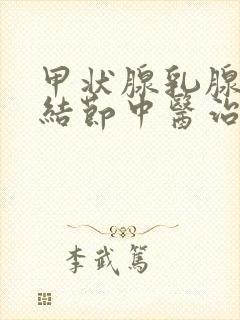 甲状腺乳腺
結節中醫治
李武篤